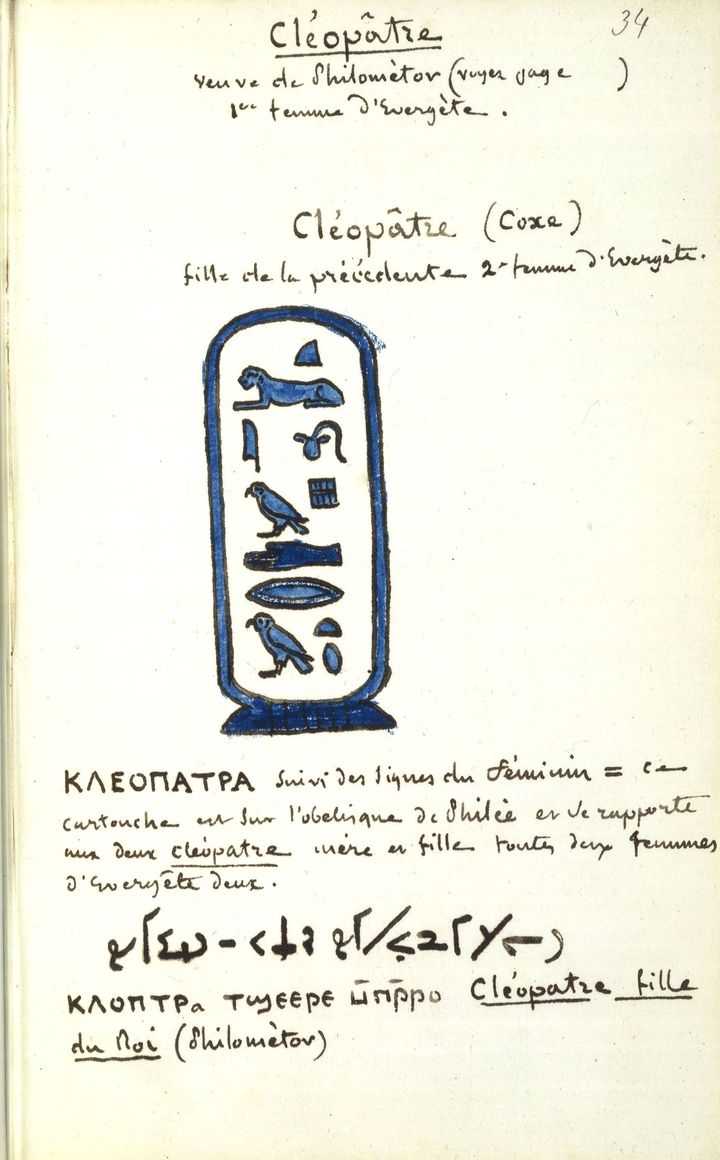 34
Cléopâtre
veuve de Philométor (voyez page     )
1ere femme d'Evergète .
Cléopâtre (Coxe)
fille de la précédente 2e femme d'Evergète.
ΚΛΕΟΠΑΤΡΑ suivi des signes du féminin = ce
cartouche est sur l'obelisque de Philée et se rapporte
aux deux cléopatre mère et fille toutes deux femmes
d'Evergète deux.
ΚΛΟΠΤΡⲁ ⲧϣⲉⲉⲣⲉ ⲙ̄ⲡⲣ̄ⲣⲟ Cléopatre fille
du Roi (Philométor)